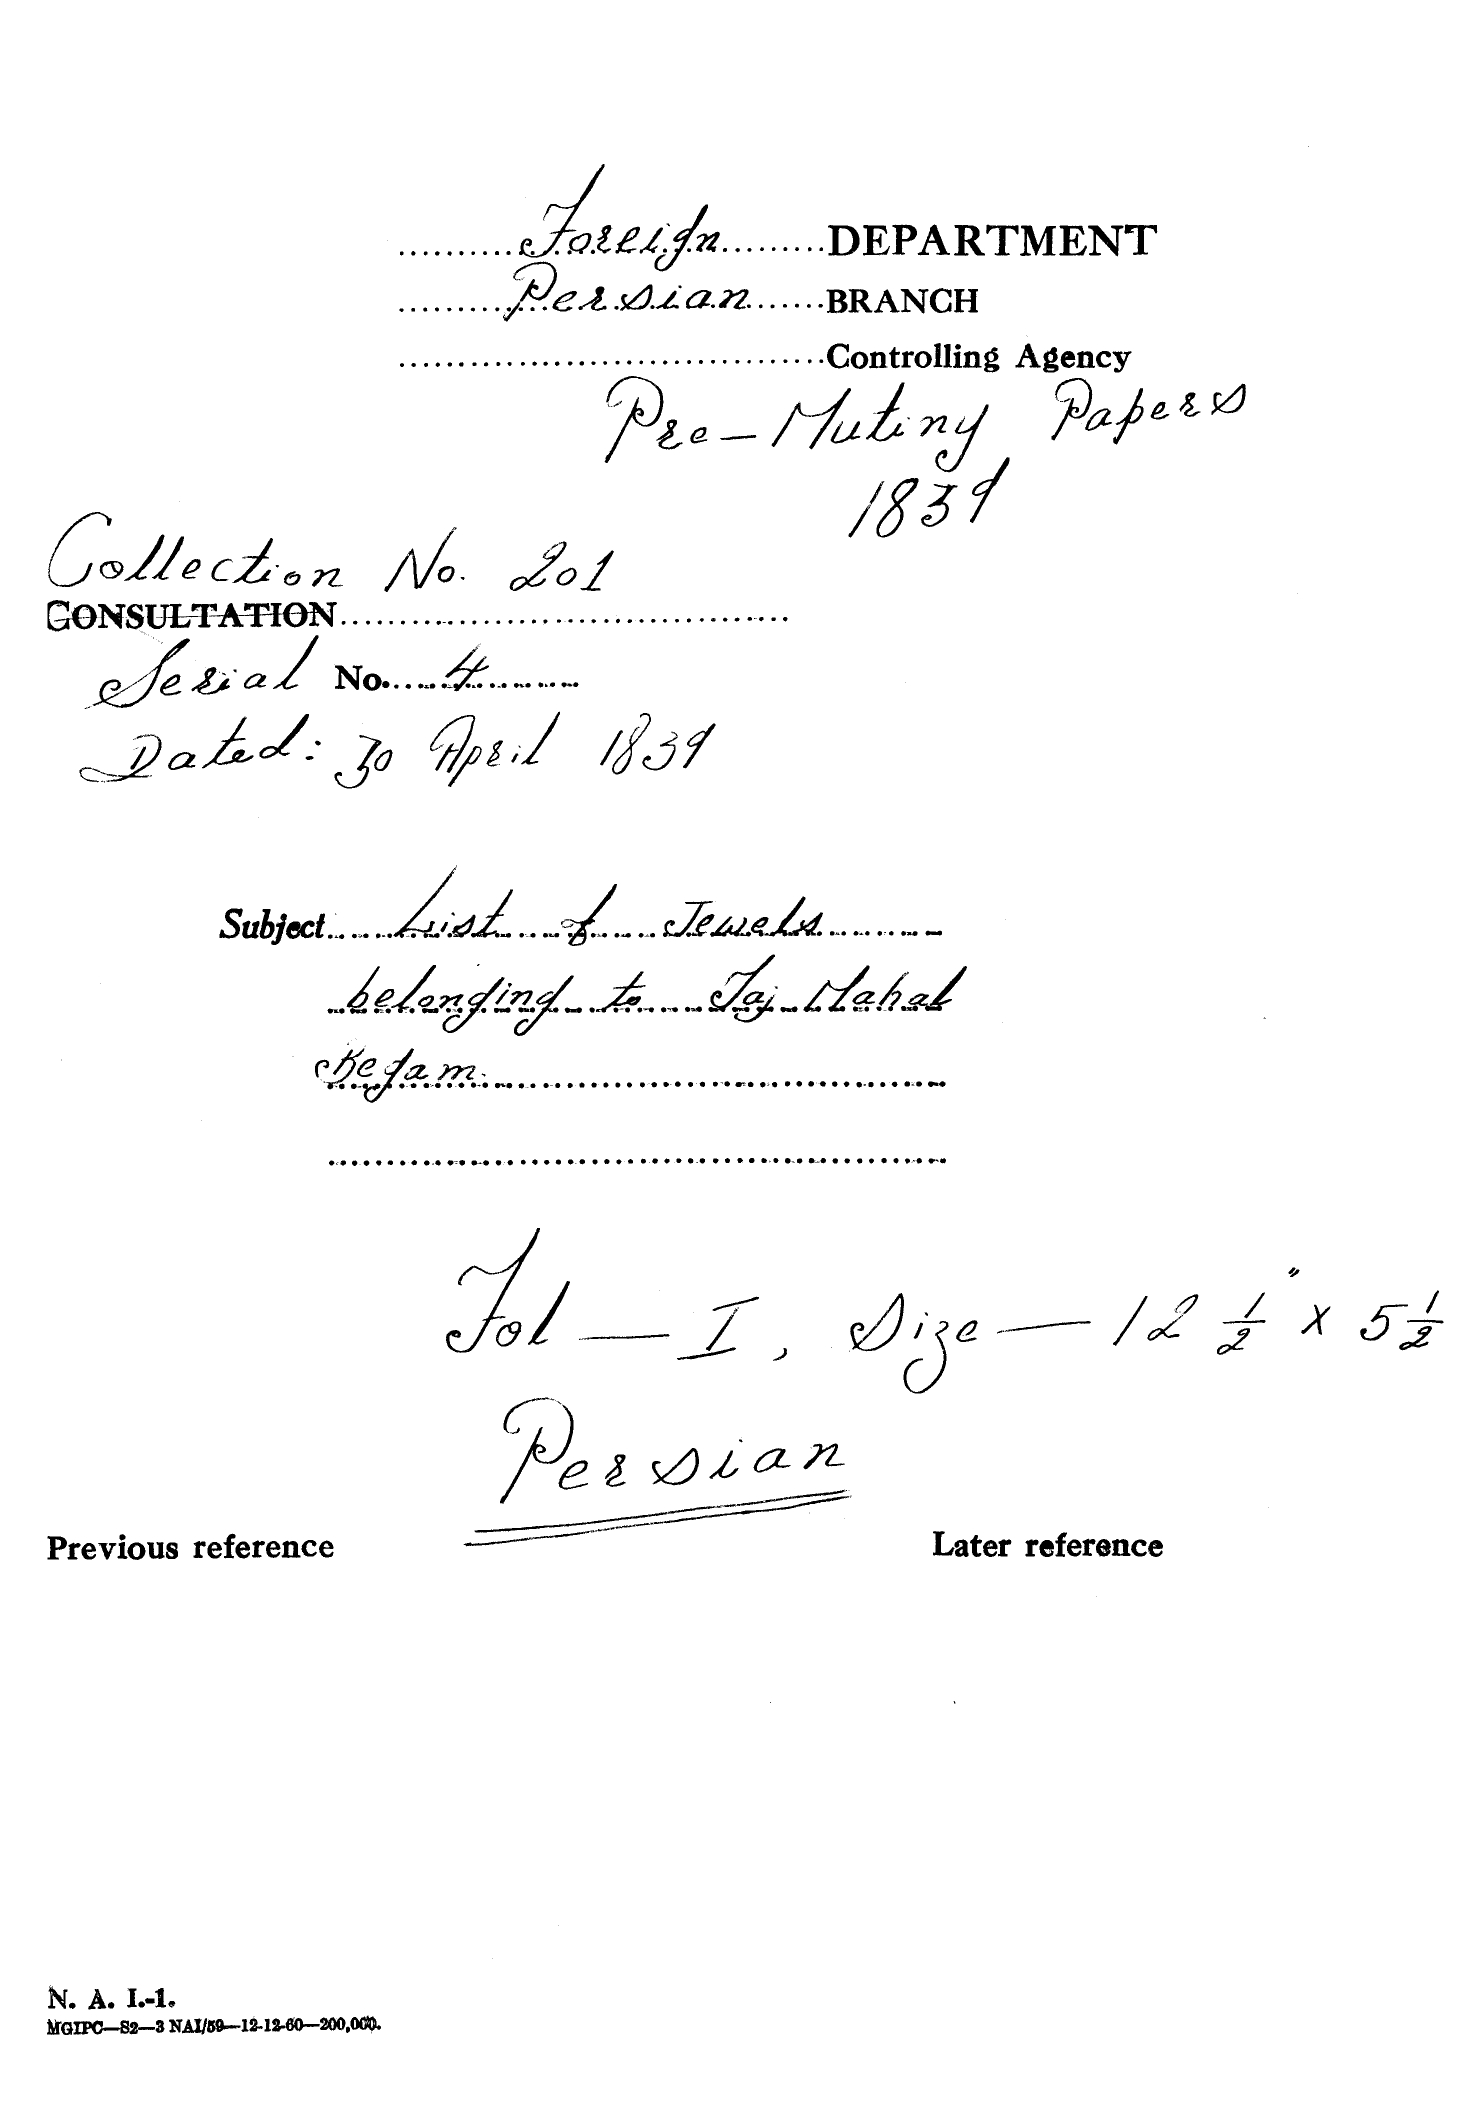 Foreign DEPARTMENT
Persian BRANCH
Controlling Agency
Pre-Mutiny Papers
1839
Collection No. 201
CONSULTATION
Serial No. 4
Dated: 30 April 1839
Subject List of Jewels
belonging to Taj Mahal
Begam.
Fol — I, Size — 12 1/2" x 5 1/2
Persian
Previous reference Later reference
N. A. I.-1.
MGIPC—S2—3 NAI/59—12-12-60—200,000.